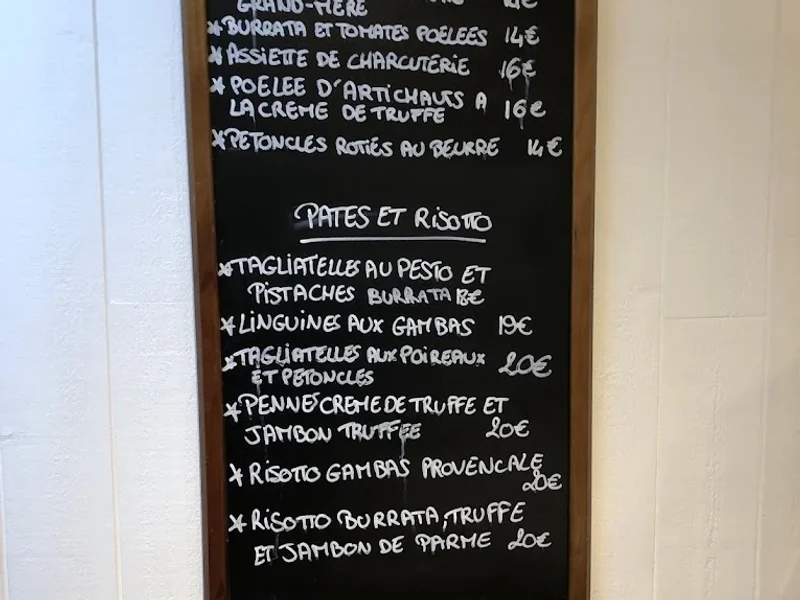 GRAND-MERE
*BURRATA ET TOMATES POELEES 14€
*ASSIETTE DE CHARCUTERIE 16€
*POELEE D'ARTICHAUTS A
LA CREME DE TRUFFE 16€
*PETONCLES ROTIES AU BEURRE 14€
PATES ET RISOTTO
*TAGLIATELLES AU PESTO ET
PISTACHES BURRATA 18€
*LINGUINES AUX GAMBAS 19€
*TAGLIATELLES AUX POIREAUX
ET PETONCLES 20€
*PENNES CREME DE TRUFFE ET
JAMBON TRUFFEE 20€
*RISOTTO GAMBAS PROVENCALE
20€
*RISOTTO BURRATA, TRUFFE
ET JAMBON DE PARME 20€